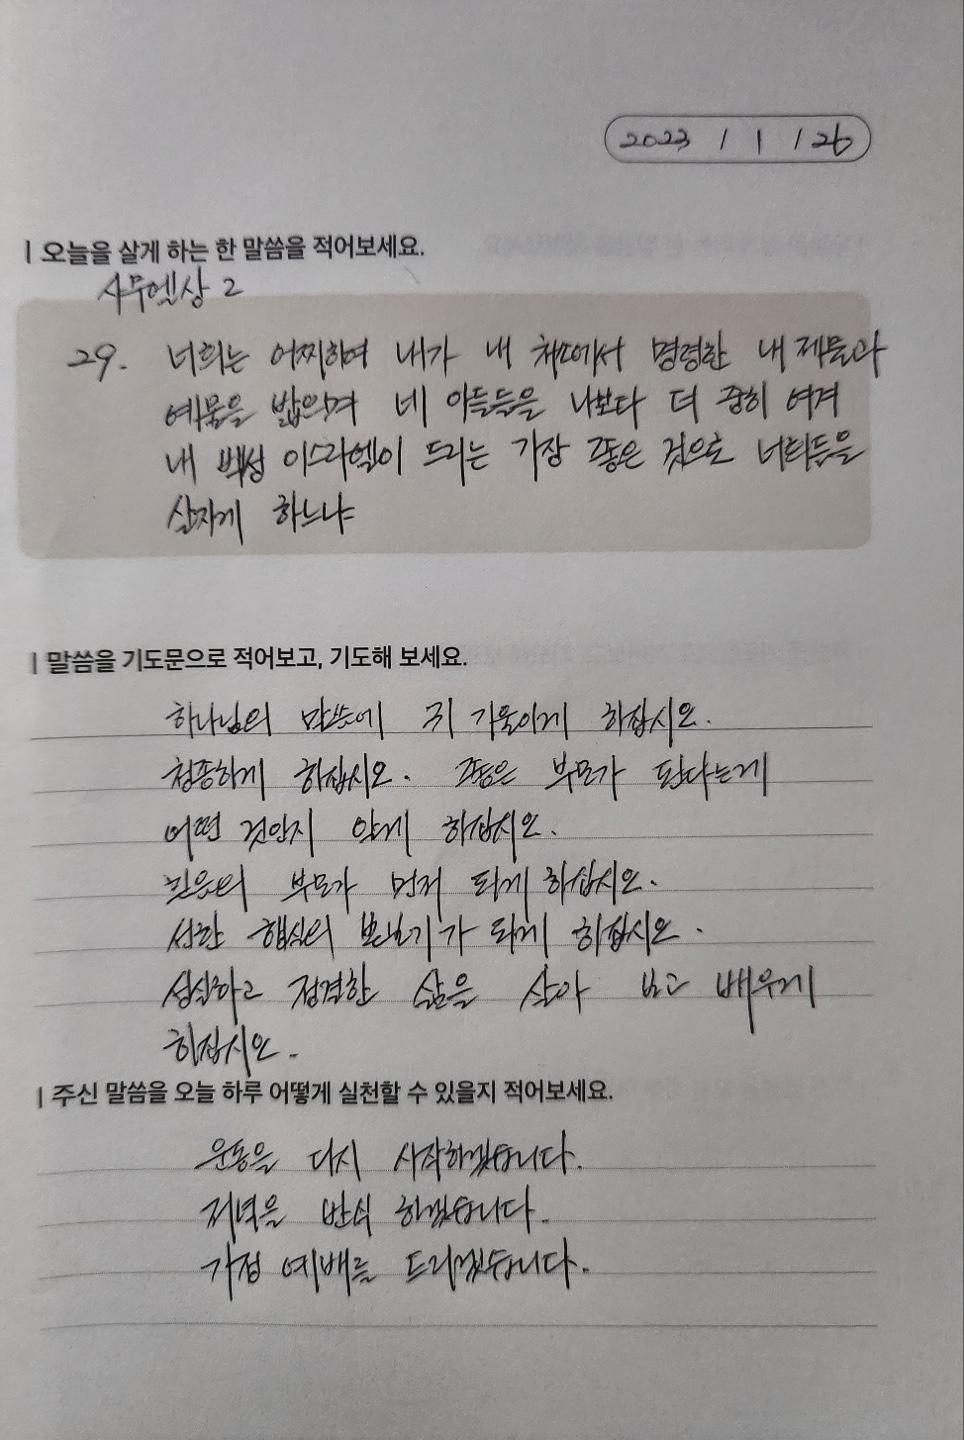 2023 / 1 / 26
오늘을 살게 하는 한 말씀을 적어보세요.
사무엘상 2
29. 너희는 어찌하여 내가 내 처소에서 명령한 내 제물과
예물을 밟으며 네 아들들을 나보다 더 중히 여겨
내 백성 이스라엘이 드리는 가장 좋은 것으로 너희들을
살지게 하느냐
말씀을 기도문으로 적어보고, 기도해 보세요.
하나님의 말씀에 귀 기울이게 하십시오.
청종하게 하십시오. 좋은 부모가 된다는게
어떤 것인지 알게 하십시오.
믿음의 부모가 먼저 되게 하십시오.
선한 행실의 본보기가 되게 하십시오.
성실하고 정결한 삶을 살아 보고 배우게
하십시오.
주신 말씀을 오늘 하루 어떻게 실천할 수 있을지 적어보세요.
운동을 다시 시작하겠습니다.
저녁을 반식 하겠습니다.
가정 예배를 드리겠습니다.